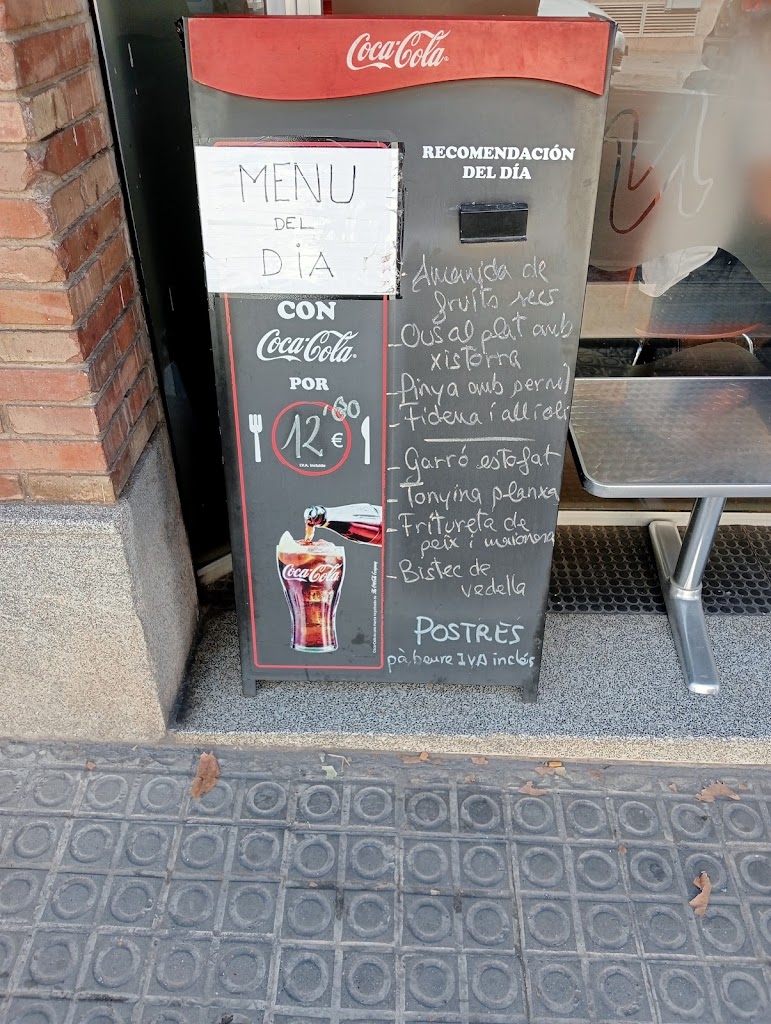 Coca-Cola
MENU
DEL
DIA
CON
Coca-Cola
POR
12'60
€
I.V.A. Incluido
Coca-Cola
RECOMENDACIÓN
DEL DÍA
- Amanida de
fruits secs
- Ous al plat amb
xistorra
- Pinya amb pernil
- Fideua i allioli
- Garró estofat
- Tonyina planxa
- Fritureta de
peix i
- Bistec de
vedella
POSTRES
pà, beure IVA inclós